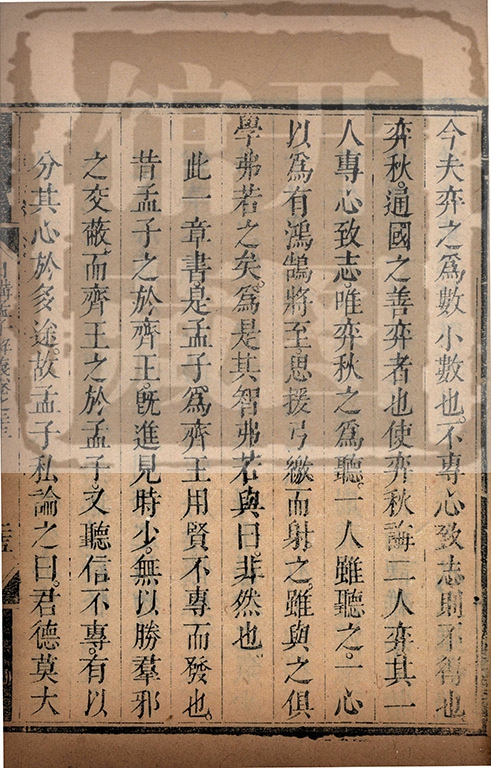 今夫弈之爲數小數也。不專心致志則不得也。
弈秋。通國之善弈者也使弈秋誨二人弈其一
人專心致志。唯弈秋之爲聽。一人雖聽之。一心
以爲有鴻鵠將至。思援弓繳而射之。雖與之俱
學弗若之矣。爲是其智弗若與曰。非然也。
此一章書。是孟子爲齊王用賢不專而發也。
昔孟子之於齊王。旣進見時少。無以勝羣邪
之交蔽。而齊王之於孟子。又聽信不專。有以
分其心於多途。故孟子私論之曰。君德莫大